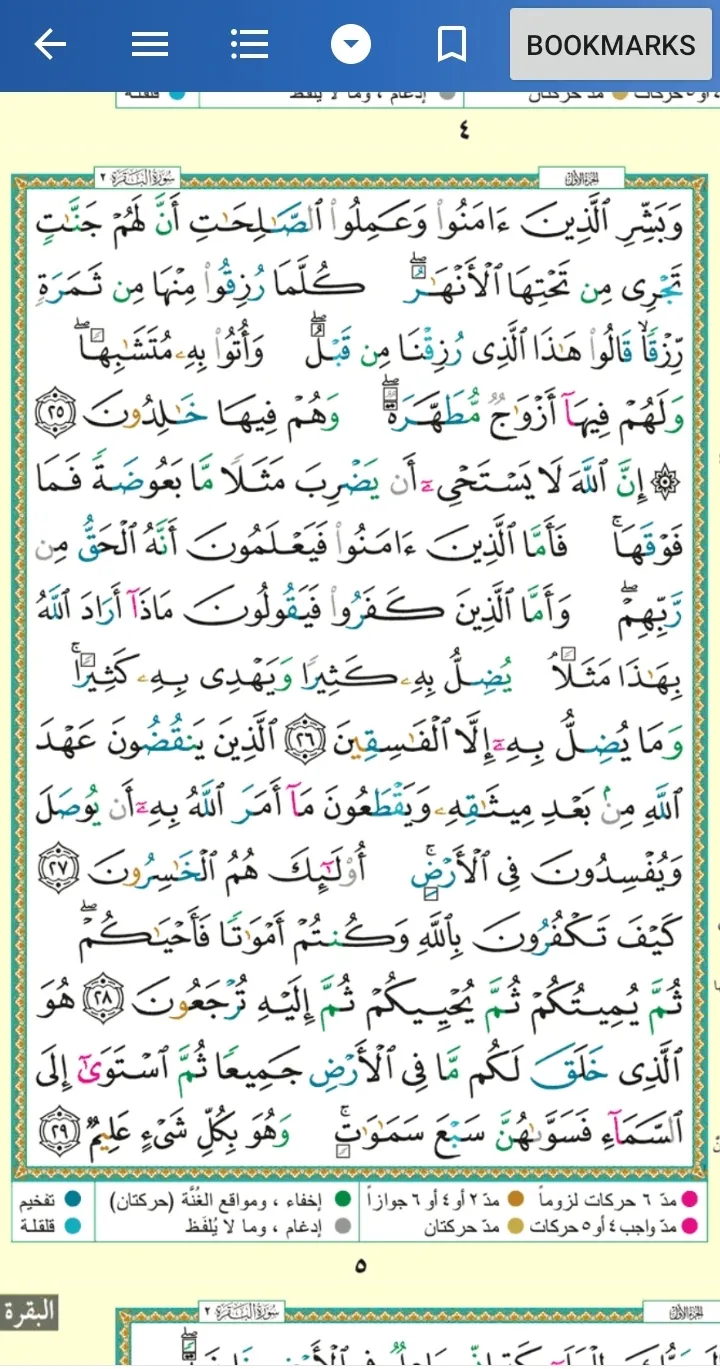 BOOKMARKS
٤
سُورَةُ الْبَقَرَة ٢
الجزء الأول
وَبَشِّرِ ٱلَّذِينَ ءَامَنُوا۟ وَعَمِلُوا۟ ٱلصَّـٰلِحَـٰتِ أَنَّ لَهُمْ جَنَّـٰتٍ
تَجْرِى مِن تَحْتِهَا ٱلْأَنْهَـٰرُ ۖ كُلَّمَا رُزِقُوا۟ مِنْهَا مِن ثَمَرَةٍ
رِّزْقًا ۙ قَالُوا۟ هَـٰذَا ٱلَّذِى رُزِقْنَا مِن قَبْلُ ۖ وَأُتُوا۟ بِهِۦ مُتَشَـٰبِهًا ۖ
وَلَهُمْ فِيهَآ أَزْوَٰجٌ مُّطَهَّرَةٌ ۖ وَهُمْ فِيهَا خَـٰلِدُونَ ٢٥
۞ إِنَّ ٱللَّهَ لَا يَسْتَحْىِۦٓ أَن يَضْرِبَ مَثَلًا مَّا بَعُوضَةً فَمَا
فَوْقَهَا ۚ فَأَمَّا ٱلَّذِينَ ءَامَنُوا۟ فَيَعْلَمُونَ أَنَّهُ ٱلْحَقُّ مِن
رَّبِّهِمْ ۖ وَأَمَّا ٱلَّذِينَ كَفَرُوا۟ فَيَقُولُونَ مَاذَآ أَرَادَ ٱللَّهُ
بِهَـٰذَا مَثَلًا ۘ يُضِلُّ بِهِۦ كَثِيرًا وَيَهْدِى بِهِۦ كَثِيرًا ۚ
وَمَا يُضِلُّ بِهِۦٓ إِلَّا ٱلْفَـٰسِقِينَ ٢٦ ٱلَّذِينَ يَنقُضُونَ عَهْدَ
ٱللَّهِ مِنۢ بَعْدِ مِيثَـٰقِهِۦ وَيَقْطَعُونَ مَآ أَمَرَ ٱللَّهُ بِهِۦٓ أَن يُوصَلَ
وَيُفْسِدُونَ فِى ٱلْأَرْضِ ۚ أُو۟لَـٰٓئِكَ هُمُ ٱلْخَـٰسِرُونَ ٢٧
كَيْفَ تَكْفُرُونَ بِٱللَّهِ وَكُنتُمْ أَمْوَٰتًا فَأَحْيَـٰكُمْ ۖ
ثُمَّ يُمِيتُكُمْ ثُمَّ يُحْيِيكُمْ ثُمَّ إِلَيْهِ تُرْجَعُونَ ٢٨ هُوَ
ٱلَّذِى خَلَقَ لَكُم مَّا فِى ٱلْأَرْضِ جَمِيعًا ثُمَّ ٱسْتَوَىٰٓ إِلَى
ٱلسَّمَآءِ فَسَوَّىٰهُنَّ سَبْعَ سَمَـٰوَٰتٍ ۚ وَهُوَ بِكُلِّ شَىْءٍ عَلِيمٌ ٢٩
مدّ ٦ حركات لزوماً مدّ ٢ أو ٤ أو ٦ جوازاً إخفاء ، ومواقع الغُنَّة (حركتان) تفخيم
مدّ واجب ٤ أو ٥ حركات مدّ حركتان إدغام ، وما لا يُلفَظ قلقلة
٥
البقرة
سُورَةُ الْبَقَرَة ٢
الجزء الأول